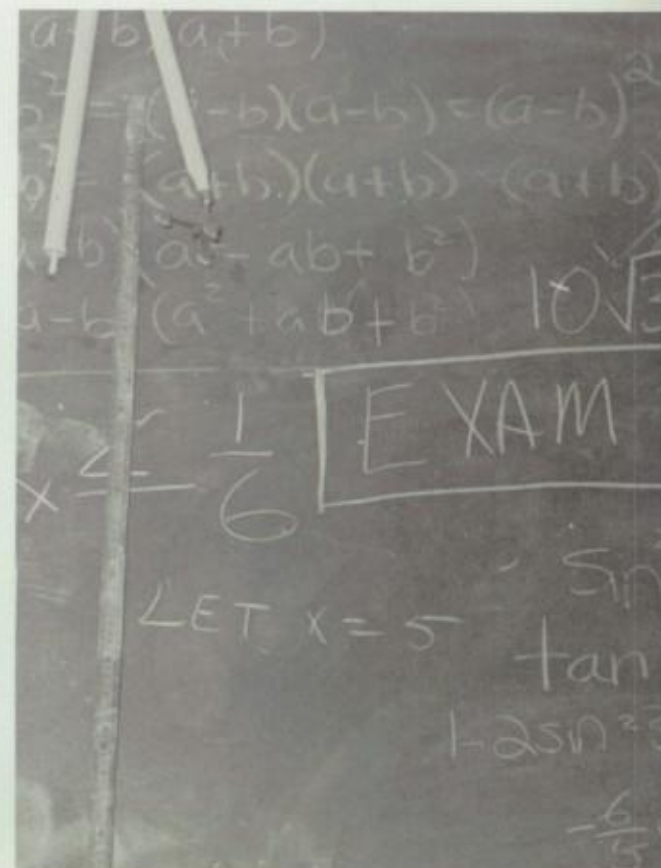 a-b)(a+b)
b² = (a-b)(a-b) = (a-b)²
b² = (a+b)(a+b) - (a+b)
+b) (a² - ab + b²)
a-b (a² + ab + b²)
10√3
EXAM
x ≤ 1/6
LET x = 5
sin
tan
1-2sin²
-6/